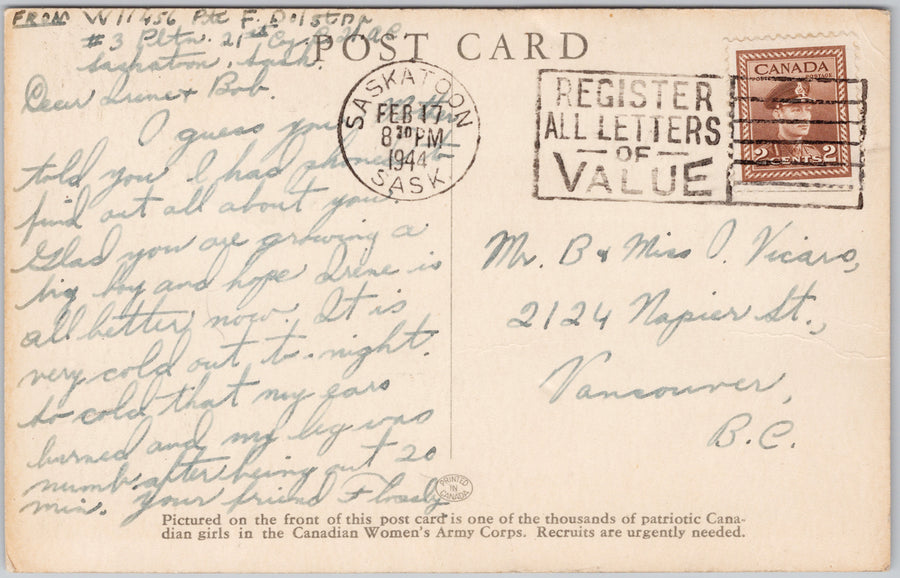 FROM W11456 Pte F. Dolston
#3 Pltn. 21st Cy. C.W.A.C
Saskatoon, Sask.
POST CARD
Dear Irene & Bob.
I guess your
told you I had phoned to
find out all about you.
Glad you are growing a
big boy and hope Irene is
all better now. It is
very cold out to-night.
So cold that my ears
burned and my leg was
numb after being out 20
min. Your friend Flossly
SASKATOON
FEB 17
8 30 PM
1944
SASK
REGISTER
ALL LETTERS
OF
VALUE
CANADA
POSTES POSTAGE
2 CENTS 2
Mr. B & Miss I. Vicars,
2124 Napier St.,
Vancouver,
B.C.
PRINTED
IN
CANADA
Pictured on the front of this post card is one of the thousands of patriotic Cana-
dian girls in the Canadian Women's Army Corps. Recruits are urgently needed.